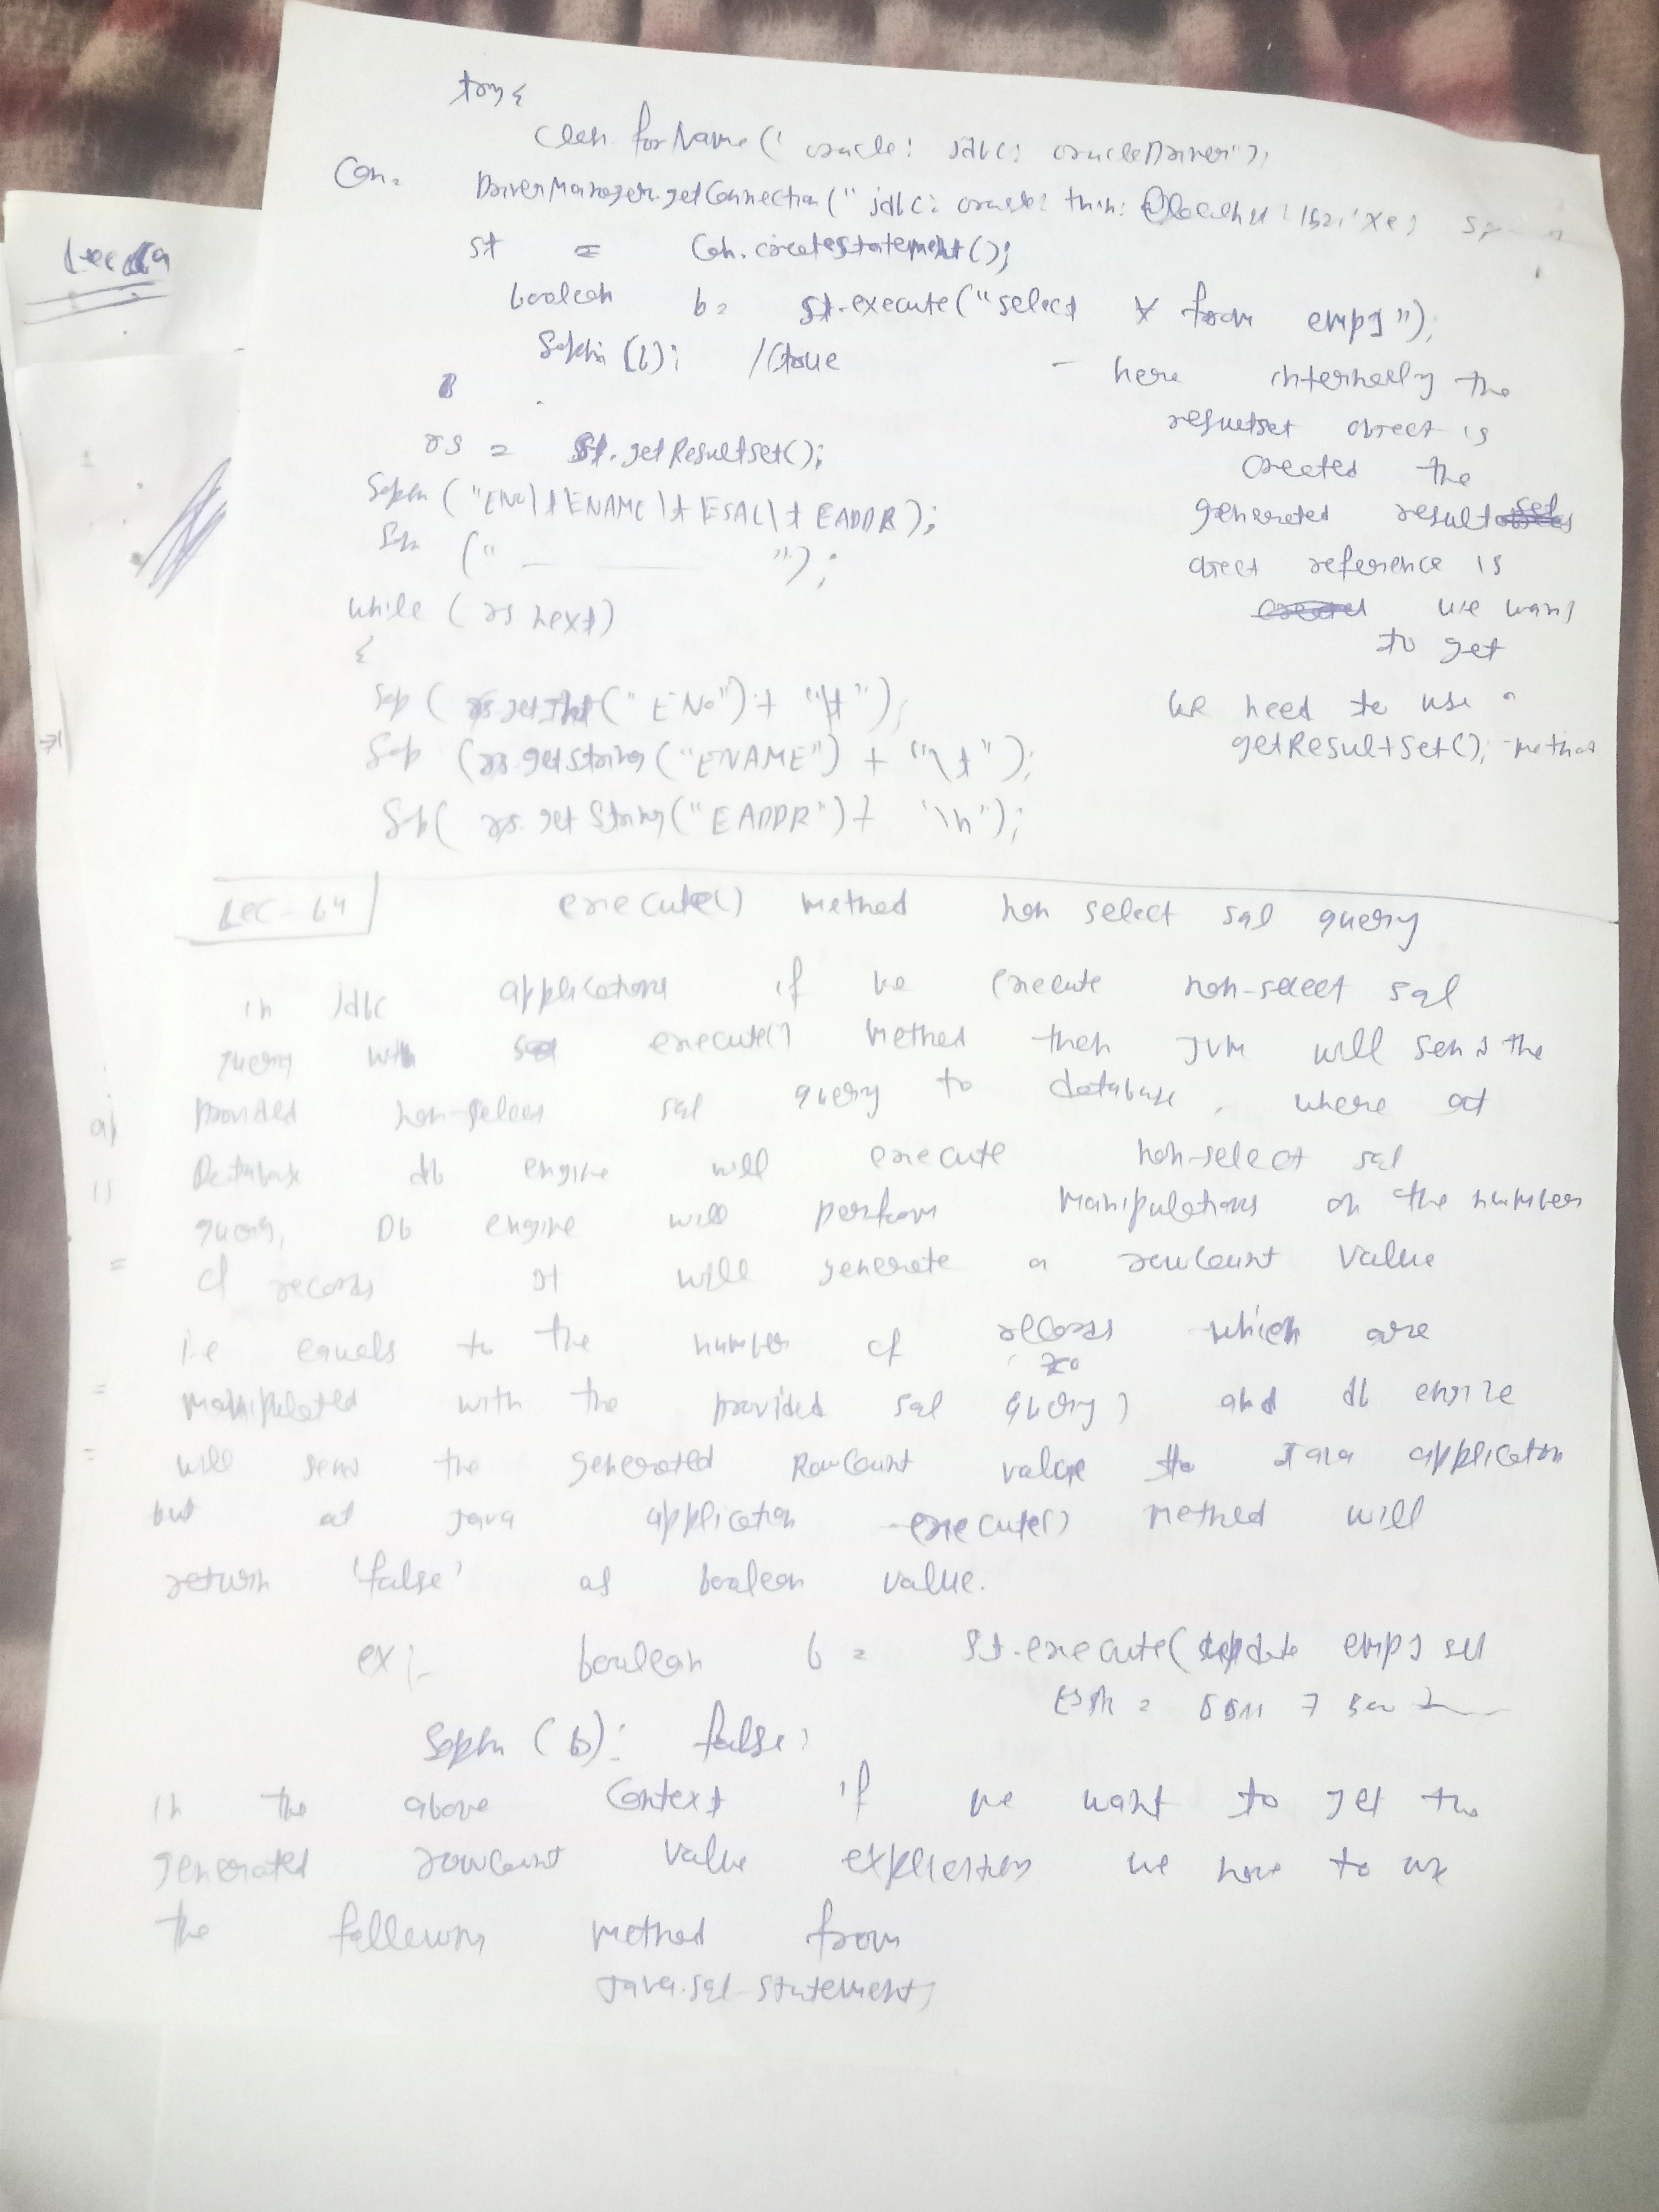 try {
Class.forName("oracle: jdbc: oracleDriver");
Con = DriverManager.getConnection("jdbc: oracle: thin: @localhst: 1521: xe;
st = Con.createstatement();
boolean b = st.execute("select * from emp1");
Sopln (b); // true
rs = St.getResultset();
Sopln ("ENO\t ENAME \t ESAL\t EADDR);
Sopln (" ");
while (rs next)
{
Sop (rs.getInt("ENo") + "\t");
Sop (rs.getString("ENAME") + "\t");
Sop( rs.getString("EADDR") + "\n");
- here internally the
resultset object is
created the
generated resultset
object reference is
we want
to get
we need to use a
getResultSet(); method
Lec - 64
execute() method non select sql query
in jdbc applications if we execute non-select sql
query with execute() method then JVM will send the
provided non-select sql query to database, where at
Database db engine will execute non-select sql
query, Db engine will perform manipulations on the number
of records It will generate a rowCount value
i.e equals to the number of records which are
manipulated with the provided sql query) and db engine
will send the generated RowCount value to Java application
but at Java application execute() method will
return 'false' as boolean value.
ex :- boolean b = St.execute(update emp1 set
Sopln (b): false;
in the above context if we want to get the
generated rowcount value explicitly we have to use
the following method from
Java.sql.statement;
Lec